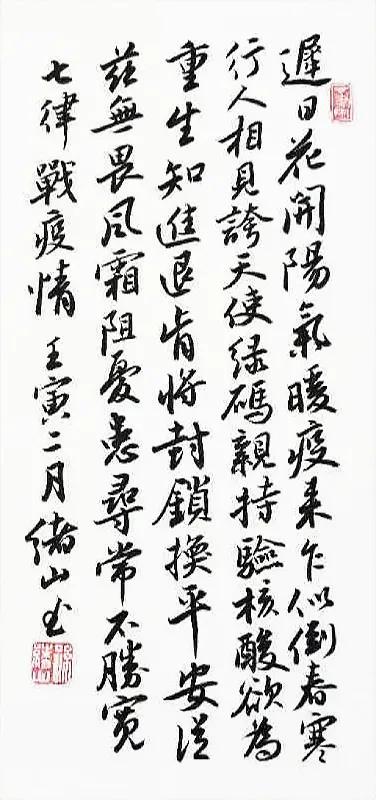 遲日花開陽氣暖疫來乍似倒春寒
行人相見誇天使绿碼親持驗核酸欲為
重生知進退肯將封鎖換平安從
茲無畏風霜阻憂患尋常不勝寬
七律戰疫情 壬寅二月绪山书